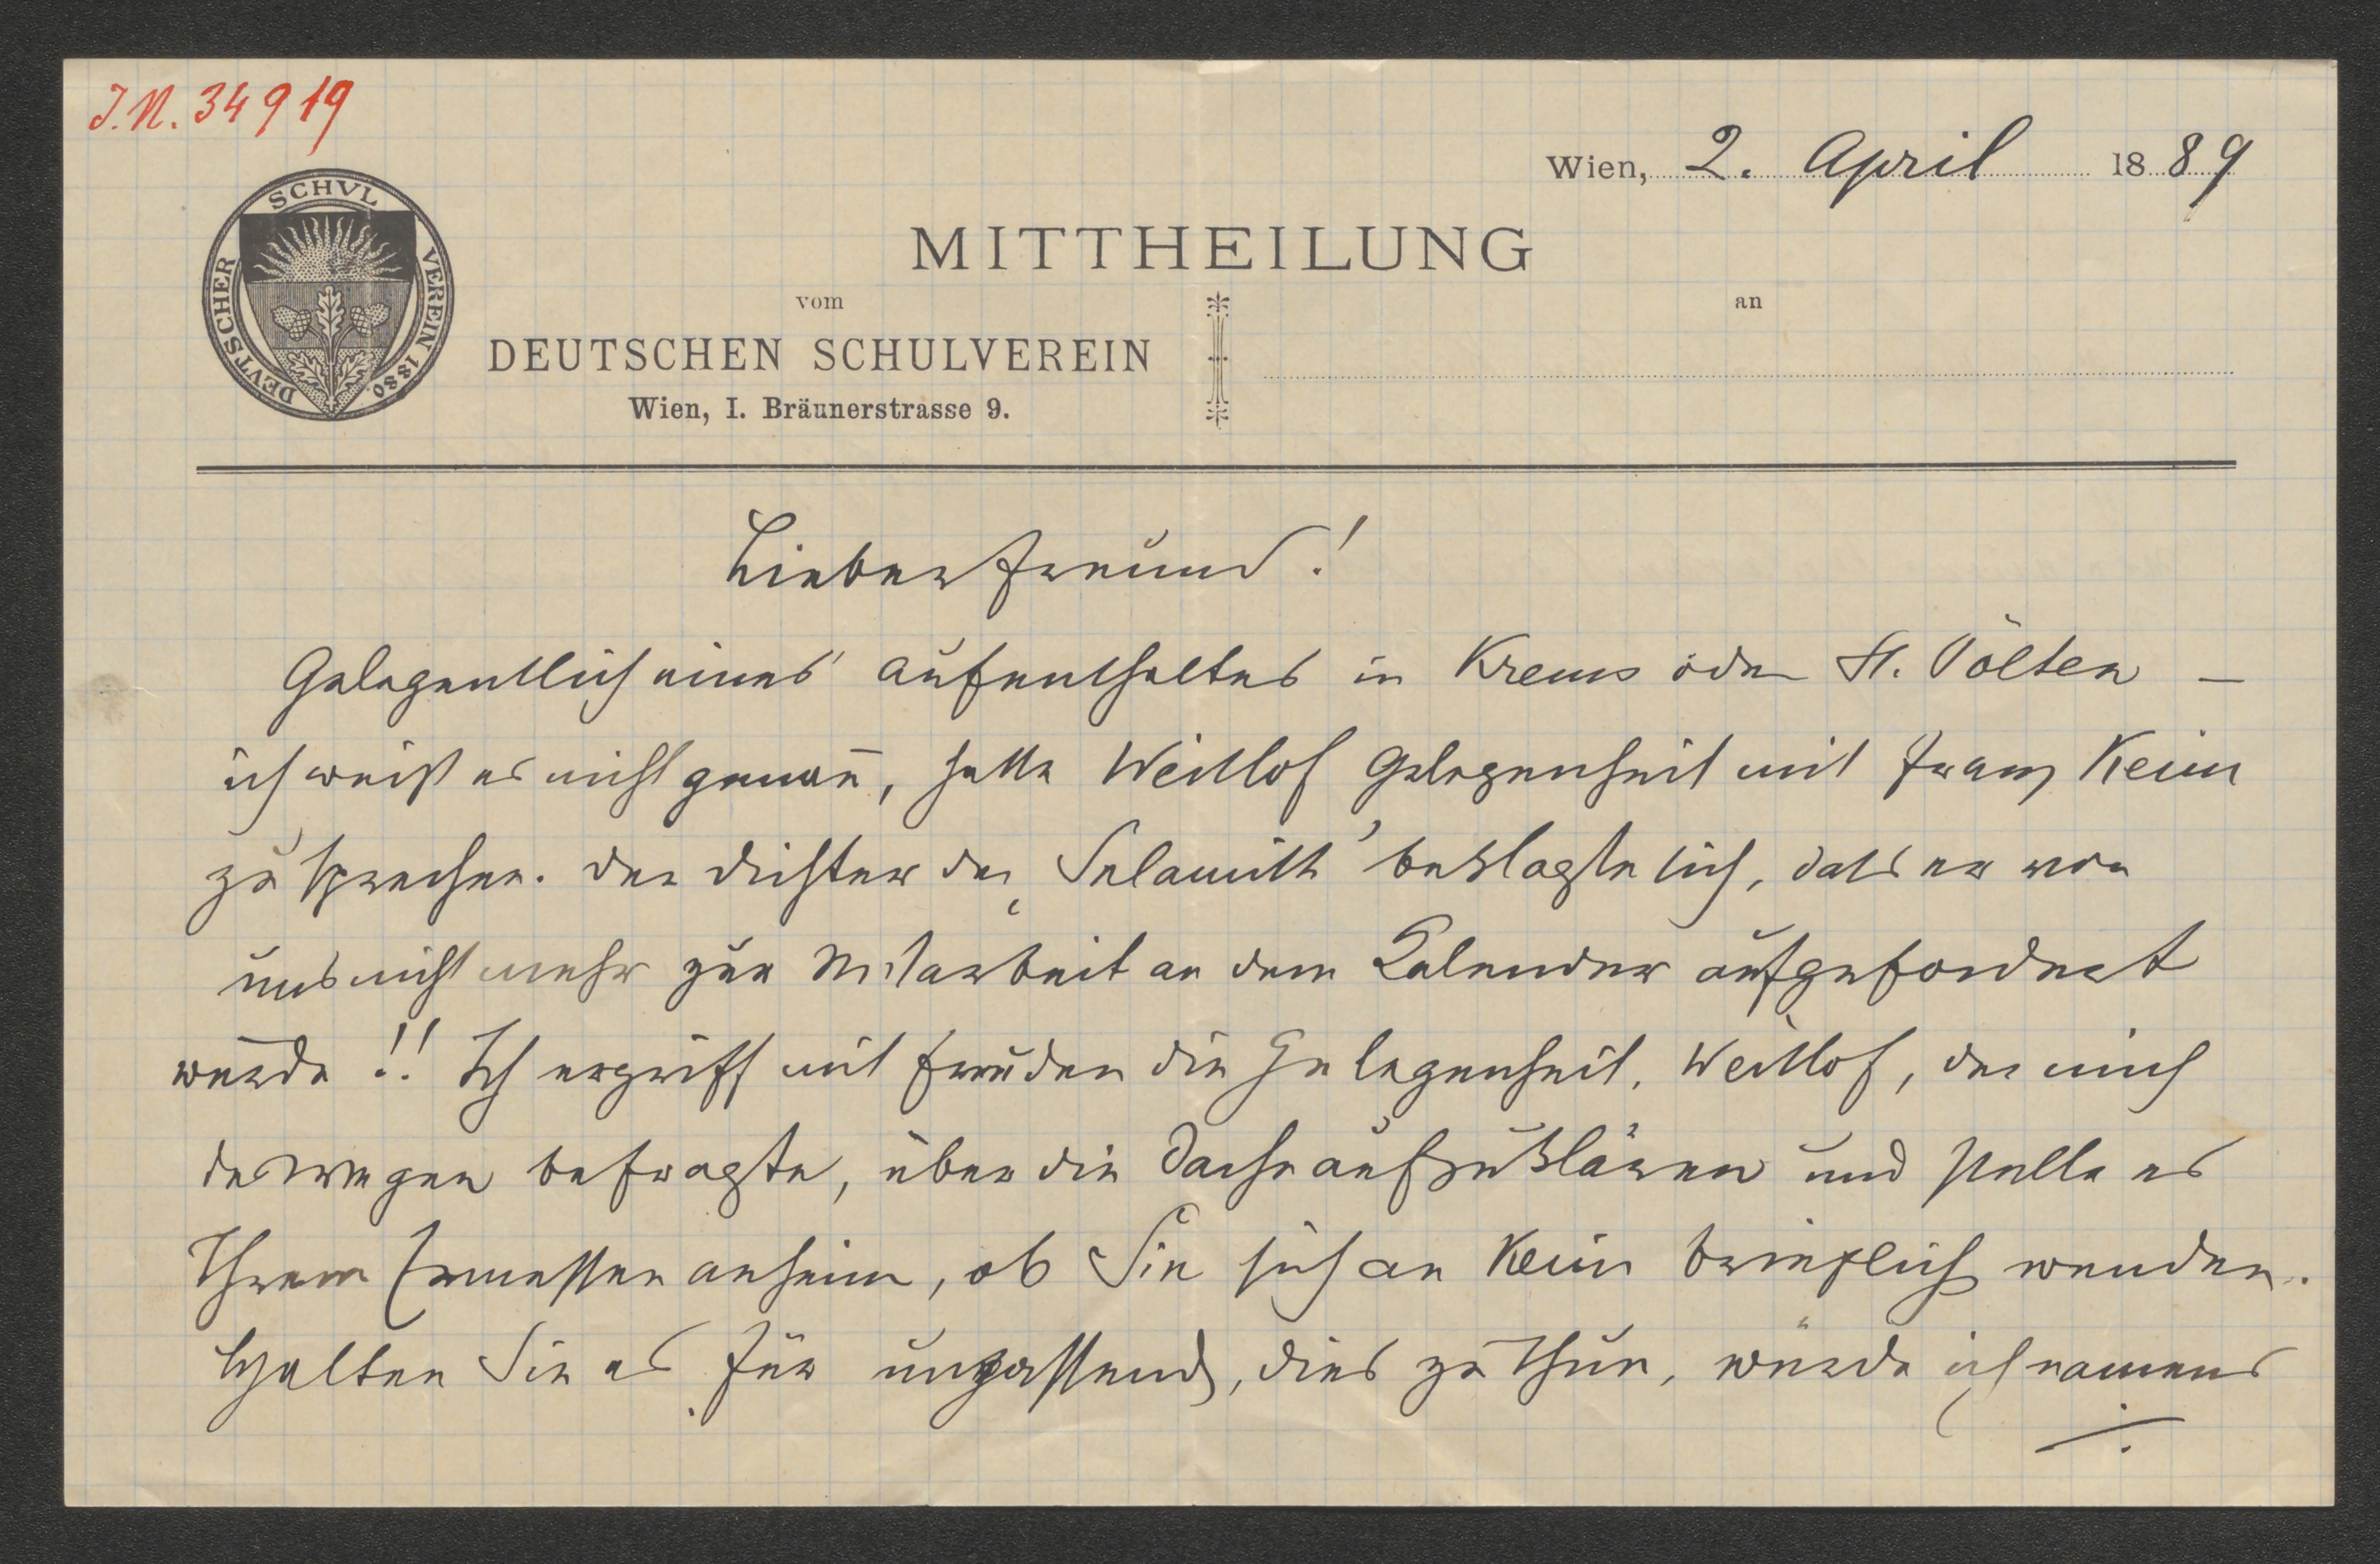 J.N. 34919
Wien, 2. April 1889
DEUTSCHER SCHVL VEREIN 1880
MITTHEILUNG
vom
an
DEUTSCHEN SCHULVEREIN
Wien, I. Bräunerstrasse 9.
Lieber Freund!
Gelegentlich eines Aufenthaltes in Krems oder St. Pölten –
ich weiß es nicht genau, hatte Weitlof Gelegenheit mit Franz Keim
zu sprechen. Der Dichter der „Sulamith" beklagte sich, dass er von
uns nicht mehr zur Mitarbeit an dem Kalender aufgefordert
wurde!! Ich ergriff mit Freuden die Gelegenheit, Weitlof, der mich
deswegen befragte, über die Sache aufzuklären und stelle es
Ihrem Ermessen anheim, ob Sie sich an Keim brieflich wenden.
Halten Sie es für unpassend, dies zu thun, würde ich namens
./.